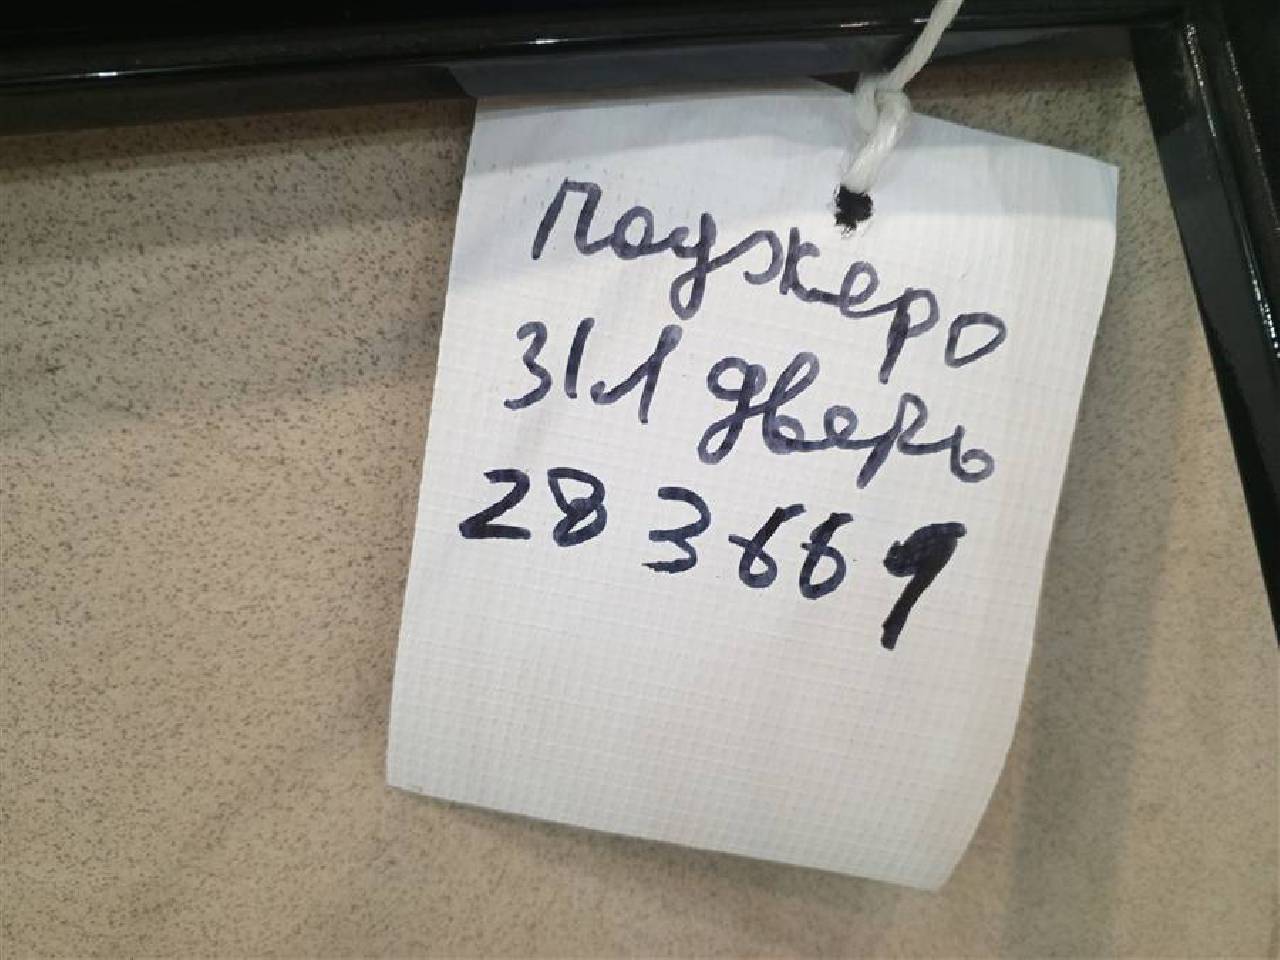 Паджеро
З/Л дверь
283669